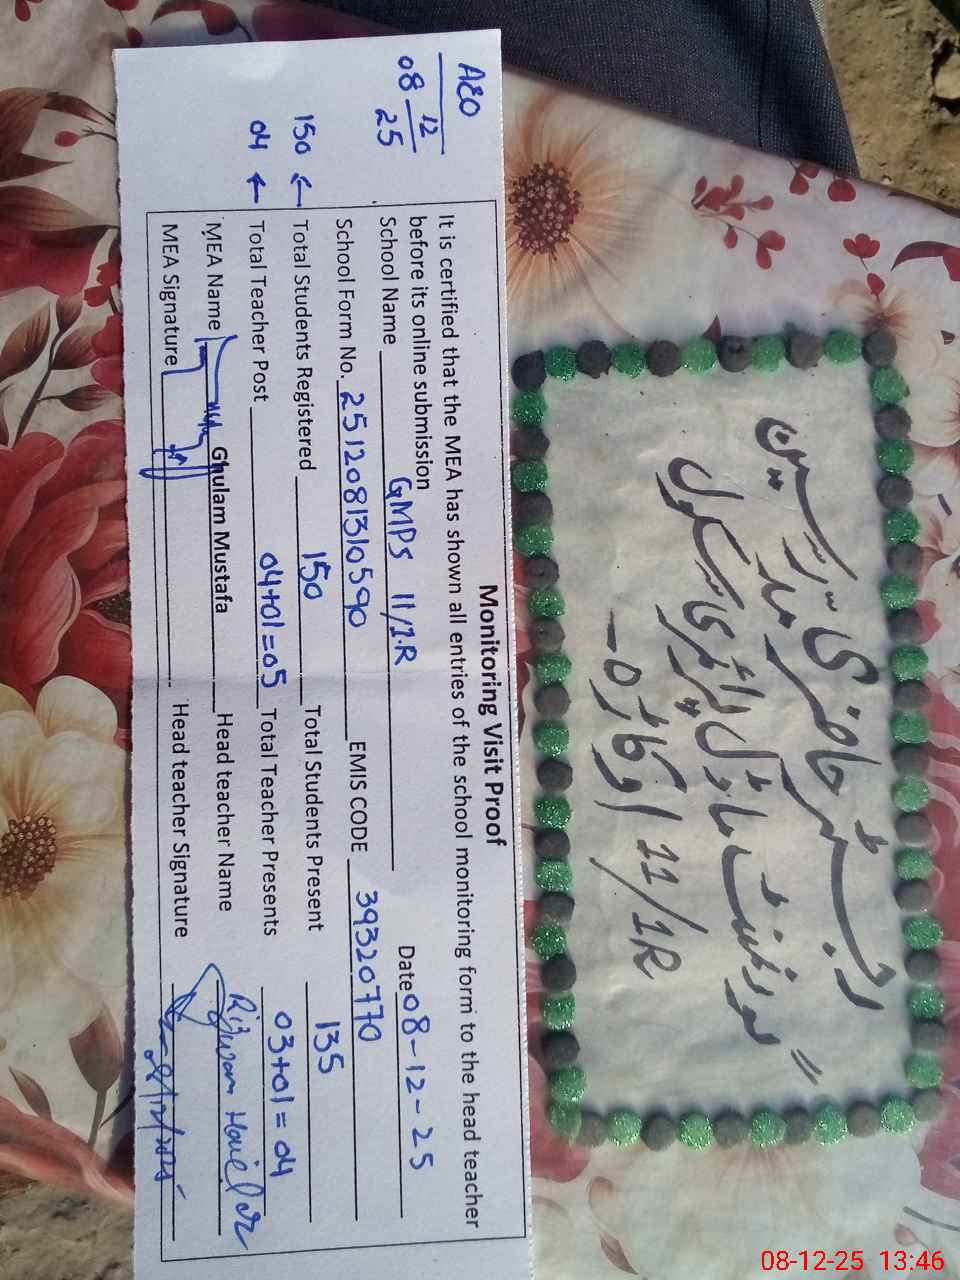 رجسٹر حاضری مدرسین
گورنمنٹ ماڈل پرائمری سکول
11/1R اوکاڑہ۔
AEO
08 12
25
150 ←
04 ←
Monitoring Visit Proof
It is certified that the MEA has shown all entries of the school monitoring form to the head teacher
before its online submission
School Name GMPS 11/1.R Date 08-12-25
School Form No. 2512081310590 EMIS CODE 39320770
Total Students Registered 150 Total Students Present 135
Total Teacher Post 04+01=05 Total Teacher Presents 03+01=04
MEA Name Ghulam Mustafa Head teacher Name Rizwan Haider
MEA Signature Head teacher Signature 08/12/2025
08-12-25 13:46